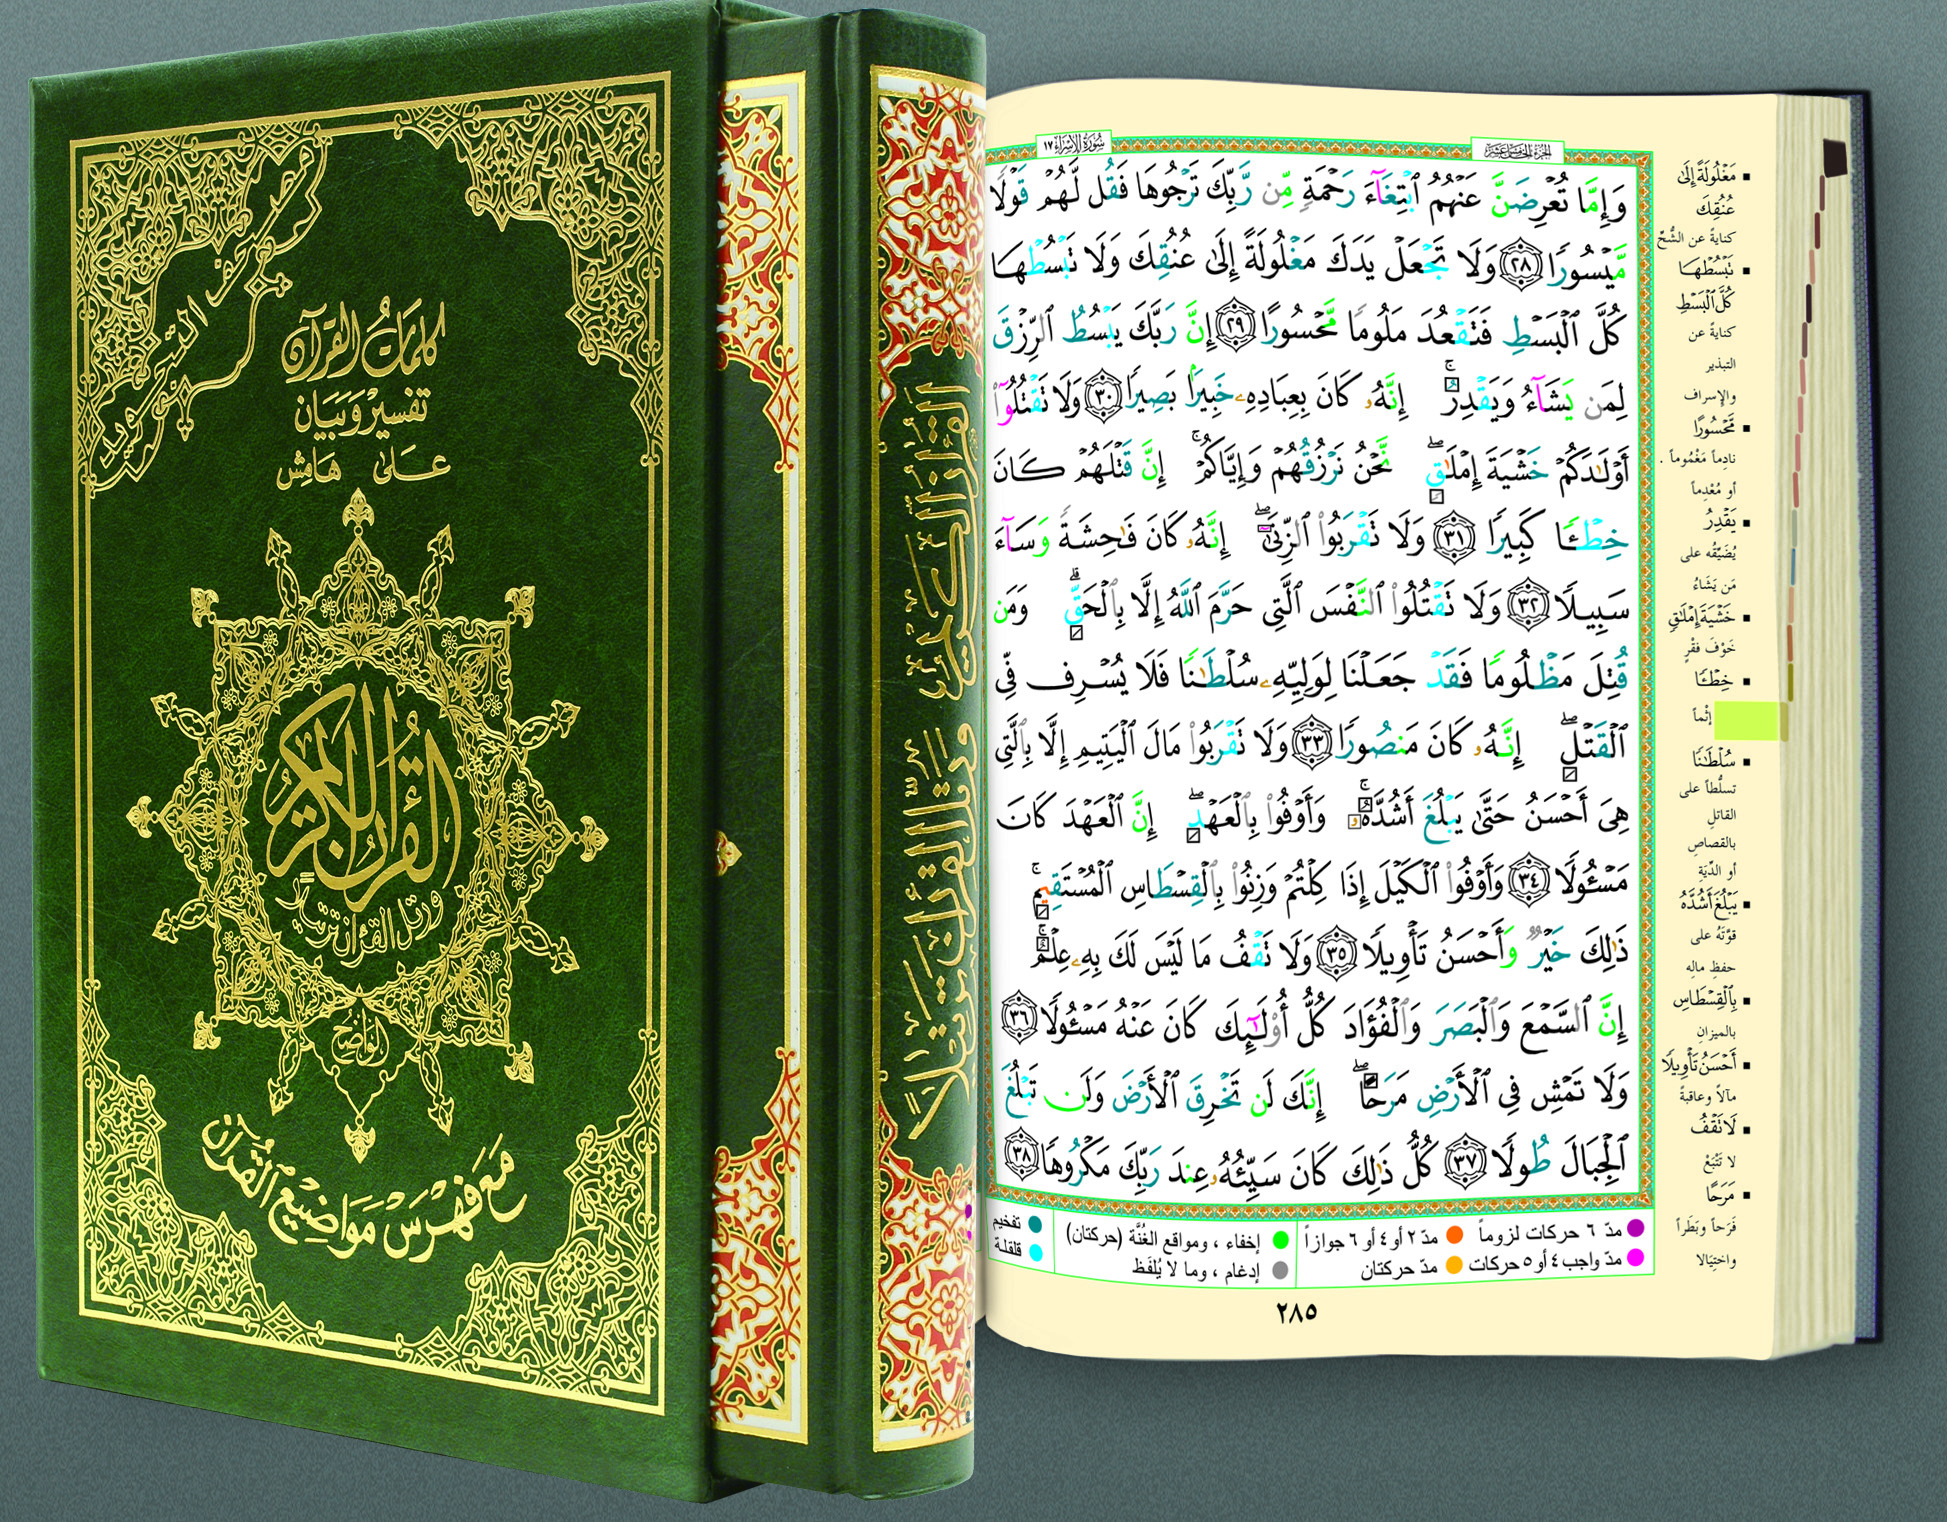 مصحف التجويد
كلمات القرآن
تفسير وبيان
على هامش
القرآن الكريم
ورتل القرءان ترتيلا
الواضح
مع فهرس مواضيع القرآن
القرآن الكريم
ورتل القرآن ترتيلاً
سُورَةُ الإِسْرَاءِ ١٧
الجزء الخامس عشر
وَإِمَّا تُعْرِضَنَّ عَنْهُمُ ٱبْتِغَآءَ رَحْمَةٍ مِّن رَّبِّكَ تَرْجُوهَا فَقُل لَّهُمْ قَوْلًا
مَّيْسُورًا ٢٨ وَلَا تَجْعَلْ يَدَكَ مَغْلُولَةً إِلَىٰ عُنُقِكَ وَلَا تَبْسُطْهَا
كُلَّ ٱلْبَسْطِ فَتَقْعُدَ مَلُومًا مَّحْسُورًا ٢٩ إِنَّ رَبَّكَ يَبْسُطُ ٱلرِّزْقَ
لِمَن يَشَآءُ وَيَقْدِرُ ۚ إِنَّهُۥ كَانَ بِعِبَادِهِۦ خَبِيرًۢا بَصِيرًا ٣٠ وَلَا تَقْتُلُوٓا۟
أَوْلَـٰدَكُمْ خَشْيَةَ إِمْلَـٰقٍ ۖ نَّحْنُ نَرْزُقُهُمْ وَإِيَّاكُمْ ۚ إِنَّ قَتْلَهُمْ كَانَ
خِطْـًٔا كَبِيرًا ٣١ وَلَا تَقْرَبُوا۟ ٱلزِّنَىٰٓ ۖ إِنَّهُۥ كَانَ فَـٰحِشَةً وَسَآءَ
سَبِيلًا ٣٢ وَلَا تَقْتُلُوا۟ ٱلنَّفْسَ ٱلَّتِى حَرَّمَ ٱللَّهُ إِلَّا بِٱلْحَقِّ ۗ وَمَن
قُتِلَ مَظْلُومًا فَقَدْ جَعَلْنَا لِوَلِيِّهِۦ سُلْطَـٰنًا فَلَا يُسْرِف فِّى
ٱلْقَتْلِ ۖ إِنَّهُۥ كَانَ مَنصُورًا ٣٣ وَلَا تَقْرَبُوا۟ مَالَ ٱلْيَتِيمِ إِلَّا بِٱلَّتِى
هِىَ أَحْسَنُ حَتَّىٰ يَبْلُغَ أَشُدَّهُۥ ۚ وَأَوْفُوا۟ بِٱلْعَهْدِ ۖ إِنَّ ٱلْعَهْدَ كَانَ
مَسْـُٔولًا ٣٤ وَأَوْفُوا۟ ٱلْكَيْلَ إِذَا كِلْتُمْ وَزِنُوا۟ بِٱلْقِسْطَاسِ ٱلْمُسْتَقِيمِ ۚ
ذَٰلِكَ خَيْرٌ وَأَحْسَنُ تَأْوِيلًا ٣٥ وَلَا تَقْفُ مَا لَيْسَ لَكَ بِهِۦ عِلْمٌ ۚ
إِنَّ ٱلسَّمْعَ وَٱلْبَصَرَ وَٱلْفُؤَادَ كُلُّ أُو۟لَـٰٓئِكَ كَانَ عَنْهُ مَسْـُٔولًا ٣٦
وَلَا تَمْشِ فِى ٱلْأَرْضِ مَرَحًا ۖ إِنَّكَ لَن تَخْرِقَ ٱلْأَرْضَ وَلَن تَبْلُغَ
ٱلْجِبَالَ طُولًا ٣٧ كُلُّ ذَٰلِكَ كَانَ سَيِّئُهُۥ عِندَ رَبِّكَ مَكْرُوهًا ٣٨
مدّ ٦ حركات لزوماً
مدّ ٢ أو ٤ أو ٦ جوازاً
مدّ واجب ٤ أو ٥ حركات
مدّ حركتان
إخفاء ، ومواقع الغُنَّة (حركتان)
إدغام ، وما لا يُلفَظ
تفخيم
قلقلة
٢٨٥
مَغْلُولَةً إِلَىٰ
عُنُقِكَ
كنايةً عن الشُّحِّ
تَبْسُطْهَا
كُلَّ ٱلْبَسْطِ
كنايةً عن
التبذير
والإسراف
مَّحْسُورًا
نادِماً مَغْمُوماً .
أو مُعْدِماً
يَقْدِرُ
يُضَيِّقُه على
مَن يَشَاءُ
خَشْيَةَ إِمْلَـٰقٍ
خَوْفَ فقْرٍ
خِطْـًٔا
إثْماً
سُلْطَـٰنًا
تسلُّطاً على
القاتلِ
بالقصاصِ
أو الدِّيَةِ
يَبْلُغَ أَشُدَّهُ
قوّتَهُ على
حفظِ مالِه
بِٱلْقِسْطَاسِ
بالميزانِ
أَحْسَنُ تَأْوِيلًا
مآلاً وعاقبةً
لَا تَقْفُ
لا تَتَّبِعْ
مَرَحًا
فَرَحاً وبَطَراً
واختِيَالا